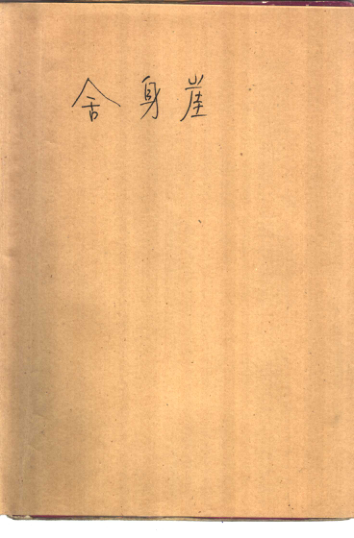 舍身崖